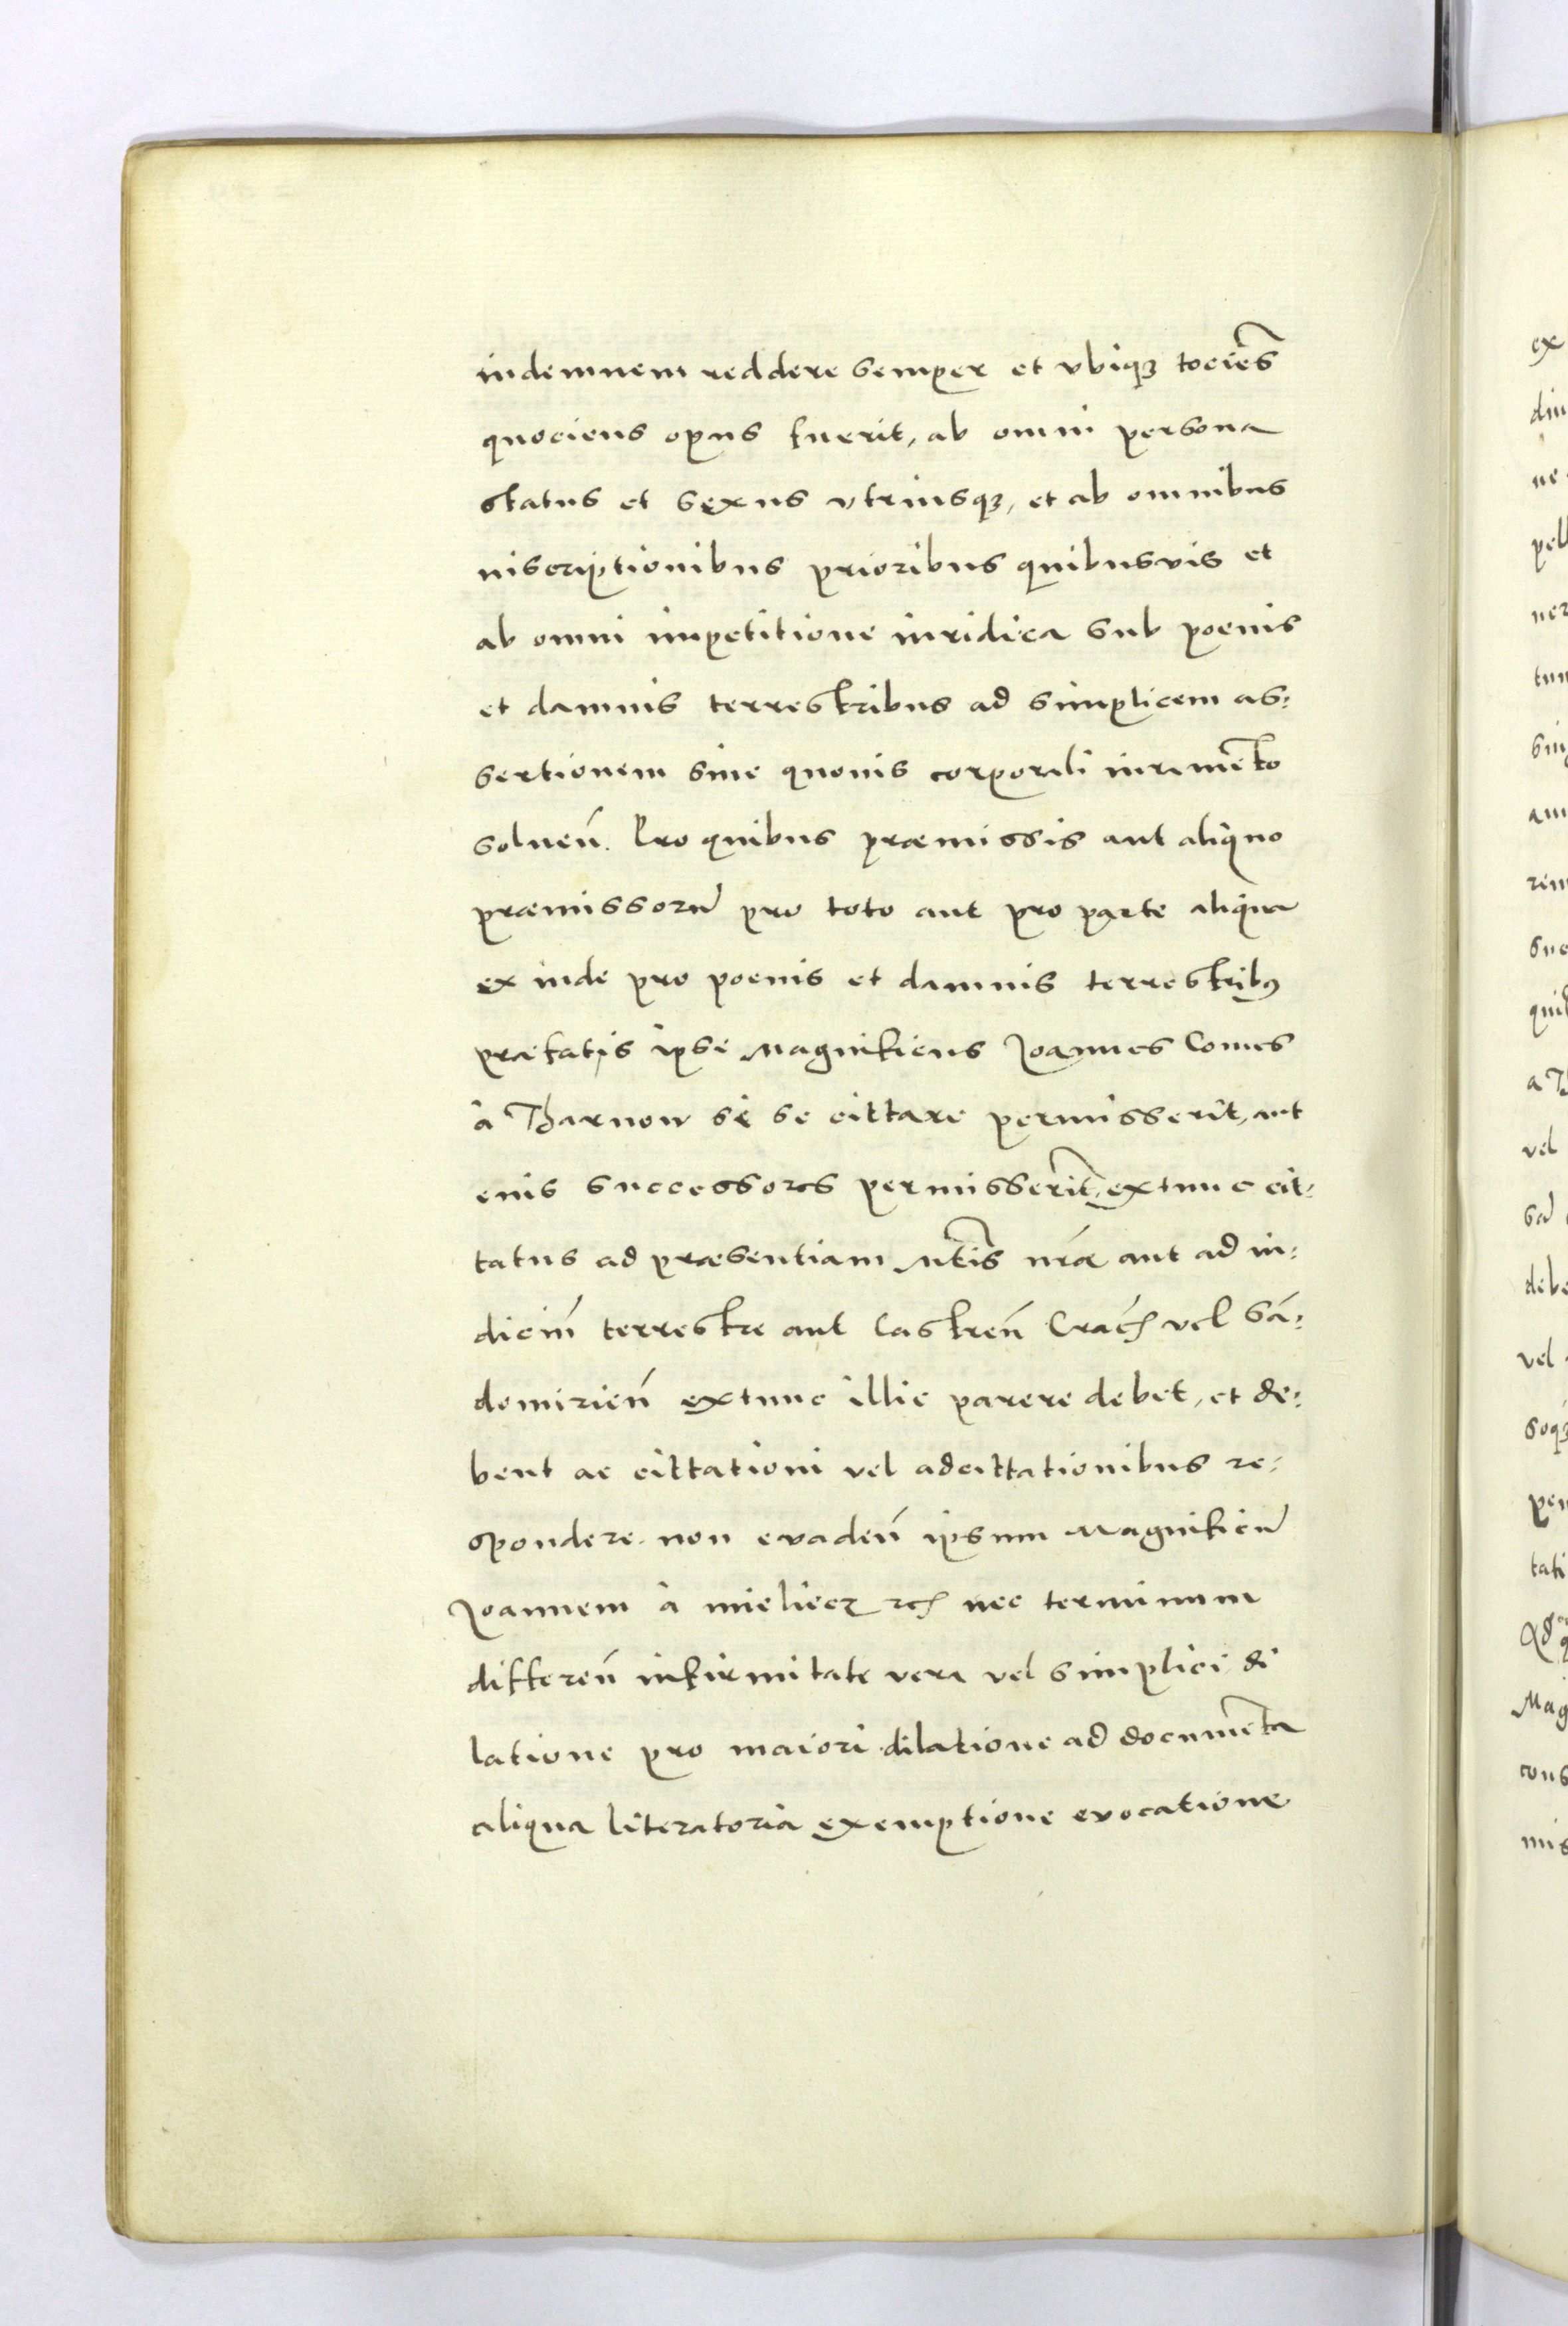 indemnem reddere semper et vbiqꝫ tociẽs
quociens opus fuerit, ab omni persona
status et sexus vtriusqꝫ, et ab omnibus
niscriptionibus prioribus quibusvis et
ab omni impetitione iuridica sub poenis
et damnis terrestribus ad simplicem as:
sertionem sine quouis corporali iuramẽto
soluen̄. Pro quibus præmissis aut aliquo
præmissorũ pro toto aut pro parte aliqua
ex inde pro poenis et damnis terrestribꝰ
præfatis ipse Magnificus Joannes Comes
à Tharnow si se cittare permisserit, aut
eius successores permisserĩt, extunc cit:
tatus ad præsentiam Mtis nr̃æ aut ad iu:
diciũ terrestre aut Castren̄ Crac̄ vel Sã:
domirien̄ extunc illic parere debet, et de:
bent ac cittationi vel adcittationibus re:
spondere. non evaden̄ ipsum Magnificũ
Joannem à mieliecz ꝛc̄ nec terminum
differen̄ infirmitate vera vel simplici, di
latione pro maiori dilatione ad documẽta
aliqua literatoria exemptione evocatione
ex